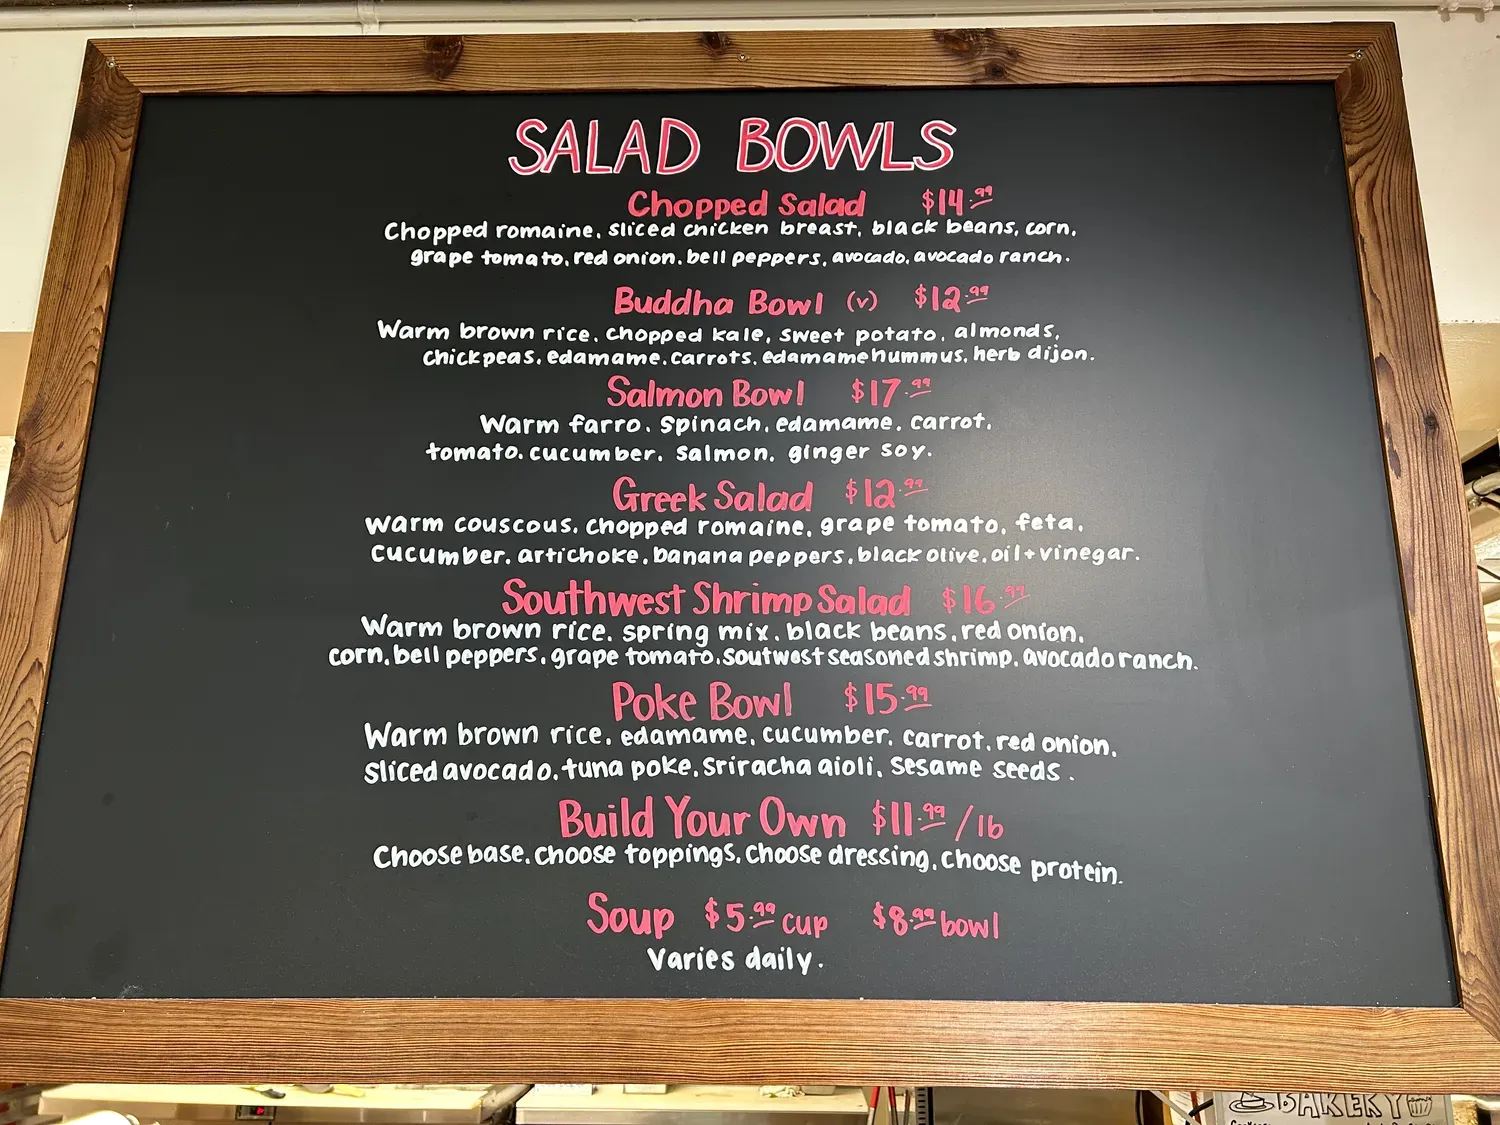 SALAD BOWLS
Chopped Salad $14.99
Chopped romaine, sliced chicken breast, black beans, corn,
grape tomato, red onion, bell peppers, avocado, avocado ranch.
Buddha Bowl (v) $12.99
Warm brown rice, chopped kale, sweet potato, almonds,
chickpeas, edamame, carrots, edamame hummus, herb dijon.
Salmon Bowl $17.99
Warm farro, spinach, edamame, carrot,
tomato, cucumber, salmon, ginger soy.
Greek Salad $12.99
Warm couscous, chopped romaine, grape tomato, feta,
cucumber, artichoke, banana peppers, black olive, oil + vinegar.
Southwest Shrimp Salad $16.99
Warm brown rice, spring mix, black beans, red onion,
corn, bell peppers, grape tomato, soutwest seasoned shrimp, avocado ranch.
Poke Bowl $15.99
Warm brown rice, edamame, cucumber, carrot, red onion,
sliced avocado, tuna poke, sriracha aioli, sesame seeds.
Build Your Own $11.99/lb
Choose base, choose toppings, choose dressing, choose protein.
Soup $5.99 cup $8.99 bowl
Varies daily.
BAKERY